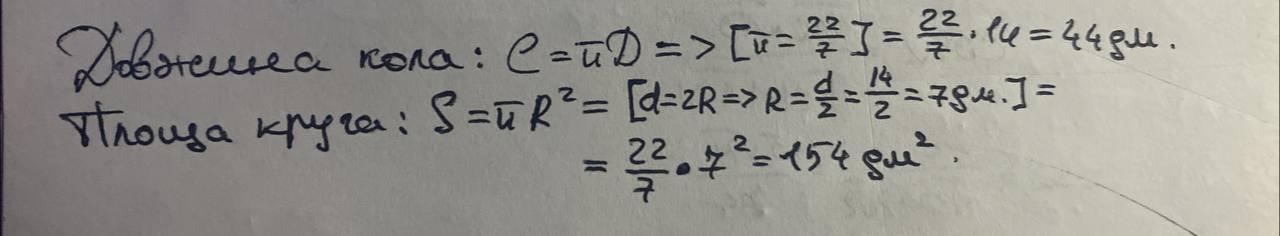 Довжина кола: C = πD => [π = 22/7] = 22/7 · 14 = 44 дм.
Площа круга: S = πR² = [d = 2R => R = d/2 = 14/2 = 7 дм.] =
= 22/7 · 7² = 154 дм².